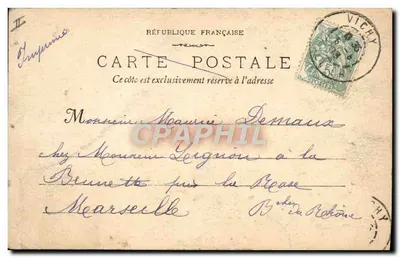 II
Imprimé
RÉPUBLIQUE FRANÇAISE
CARTE POSTALE
Ce côté est exclusivement réservé à l'adresse
VICHY
Monsieur Maurice Demaux
chez Monsieur Peignon à la
près la Rose
Marseille Bches du Rhône
CPAPHIL